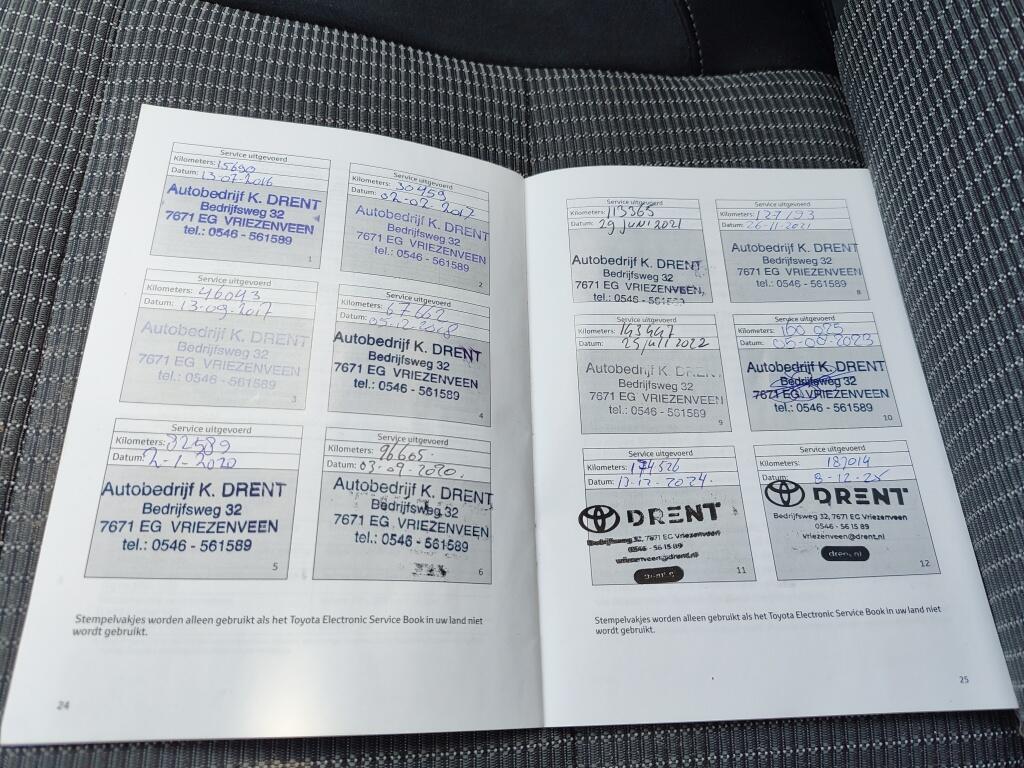 Service uitgevoerd
Kilometers: 15690
Datum: 13-07-2016
Autobedrijf K. DRENT
Bedrijfsweg 32
7671 EG VRIEZENVEEN
tel.: 0546 - 561589
1
Service uitgevoerd
Kilometers: 30459
Datum: 02-02-2017
Autobedrijf K. DRENT
Bedrijfsweg 32
7671 EG VRIEZENVEEN
tel.: 0546 - 561589
2
Service uitgevoerd
Kilometers: 46043
Datum: 13-09-2017
Autobedrijf K. DRENT
Bedrijfsweg 32
7671 EG VRIEZENVEEN
tel.: 0546 - 561589
3
Service uitgevoerd
Kilometers: 67662
Datum: 05-12-2018
Autobedrijf K. DRENT
Bedrijfsweg 32
7671 EG VRIEZENVEEN
tel.: 0546 - 561589
4
Service uitgevoerd
Kilometers: 82589
Datum: 2-1-2020
Autobedrijf K. DRENT
Bedrijfsweg 32
7671 EG VRIEZENVEEN
tel.: 0546 - 561589
5
Service uitgevoerd
Kilometers: 96665.
Datum: 03-09-2020.
Autobedrijf K. DRENT
Bedrijfsweg 32
7671 EG VRIEZENVEEN
tel.: 0546 - 561589
6
Stempelvakjes worden alleen gebruikt als het Toyota Electronic Service Book in uw land niet
wordt gebruikt.
24
Service uitgevoerd
Kilometers: 113365
Datum: 29 juni 2021
Autobedrijf K. DRENT
Bedrijfsweg 32
7671 EG VRIEZENVEEN,
tel.: 0546 - 561589
Service uitgevoerd
Kilometers:
Datum: 26-11-2021
Autobedrijf K. DRENT
Bedrijfsweg 32
7671 EG VRIEZENVEEN
tel.: 0546 - 561589
8
Service uitgevoerd
Kilometers: 143447
Datum: 25 juli 2022
Autobedrijf K. DRENT
Bedrijfsweg 32
7671 EG VRIEZENVEEN
tel.: 0546 - 561589
9
Service uitgevoerd
Kilometers: 160025
Datum: 05-08-2023
Autobedrijf K. DRENT
Bedrijfsweg 32
7671 EG VRIEZENVEEN
tel.: 0546 - 561589
10
Service uitgevoerd
Kilometers: 174526
Datum: 2024.
DRENT
Bedrijfsweg 32, 7671 EC Vriezenveen
0546 - 56 15 89
vriezenveen@drent.nl
11
Service uitgevoerd
Kilometers: 187014
Datum: 8-12-25
DRENT
Bedrijfsweg 32, 7671 EC Vriezenveen
0546 - 56 15 89
vriezenveen@drent.nl
drent.nl
12
Stempelvakjes worden alleen gebruikt als het Toyota Electronic Service Book in uw land niet
wordt gebruikt.
25